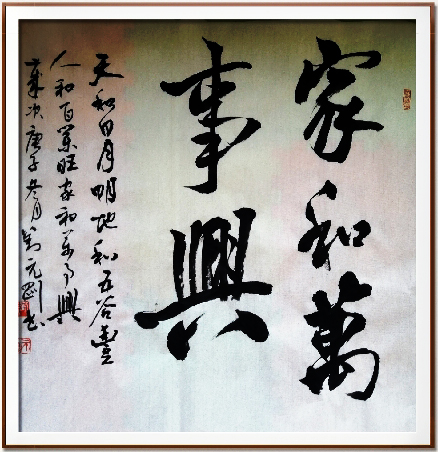 家和萬
事興
天和日月明地和五谷豐
人和百業旺家和万事興
歲次庚子冬月刘元刚书